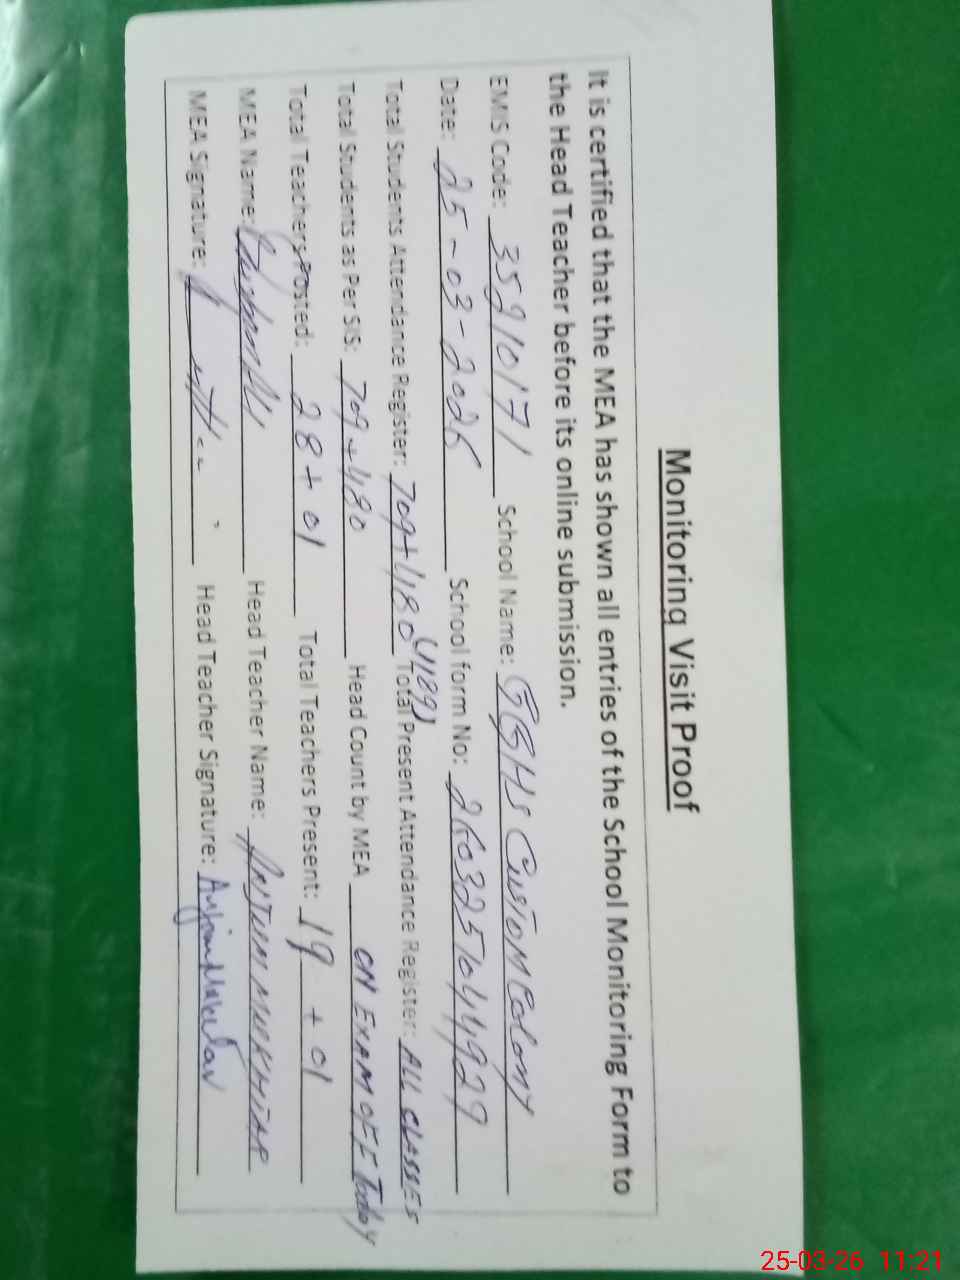 Monitoring Visit Proof
It is certified that the MEA has shown all entries of the School Monitoring Form to
the Head Teacher before its online submission.
EMIS Code: 35210171 School Name: GGHS Custom Colony
Date: 25-03-2026 School form No: 2603257044929
Total Students Attendance Register: 709+480 (1189) Total Present Attendance Register: ALL CLASSES
Total Students as Per SIS: 709+480 Head Count by MEA ON EXAM OFF Today
Total Teachers Posted: 28+01 Total Teachers Present: 19 + 01
MEA Name: Head Teacher Name: ANJUM MUKHTAR
MEA Signature: Head Teacher Signature:
25-03-26 11:21